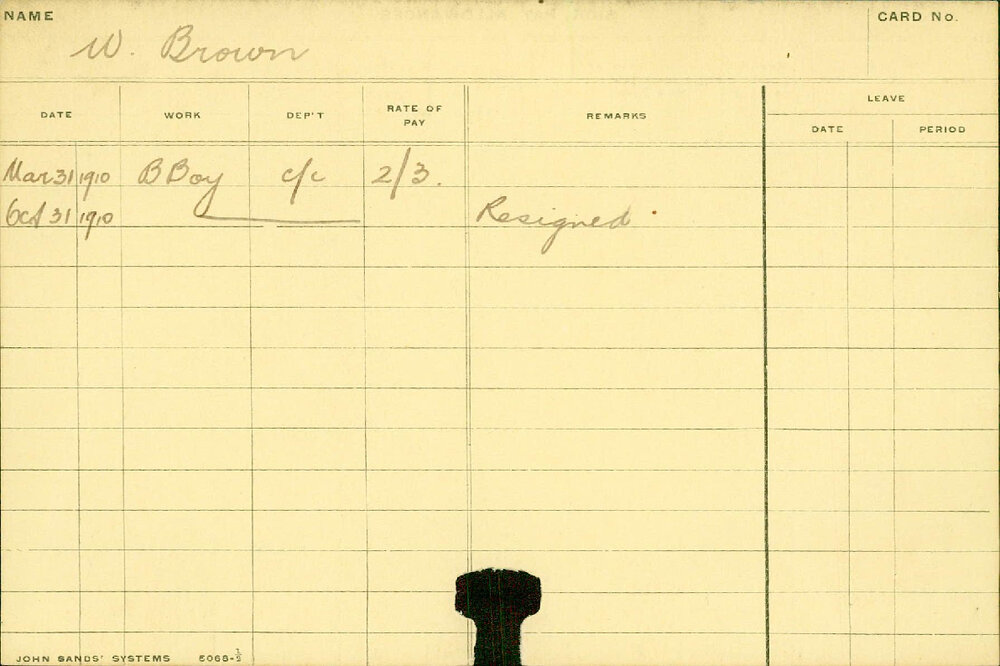 NAME
CARD No.
W. Brown
DATE WORK DEP'T RATE OF PAY REMARKS LEAVE
DATE PERIOD
Mar 31 1910 B Boy c/c 2/3.
Oct 31 1910 Resigned
JOHN SANDS' SYSTEMS 5068-½